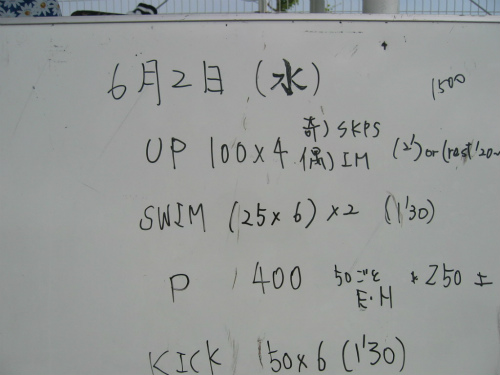 6月2日(水)
1500
UP 100×4 奇)SKPS (2') or (rest
偶)IM
SWIM (25×6)×2 (1'30)
P 400 50ごと *250
E・H
KICK 150×6 (1'30)